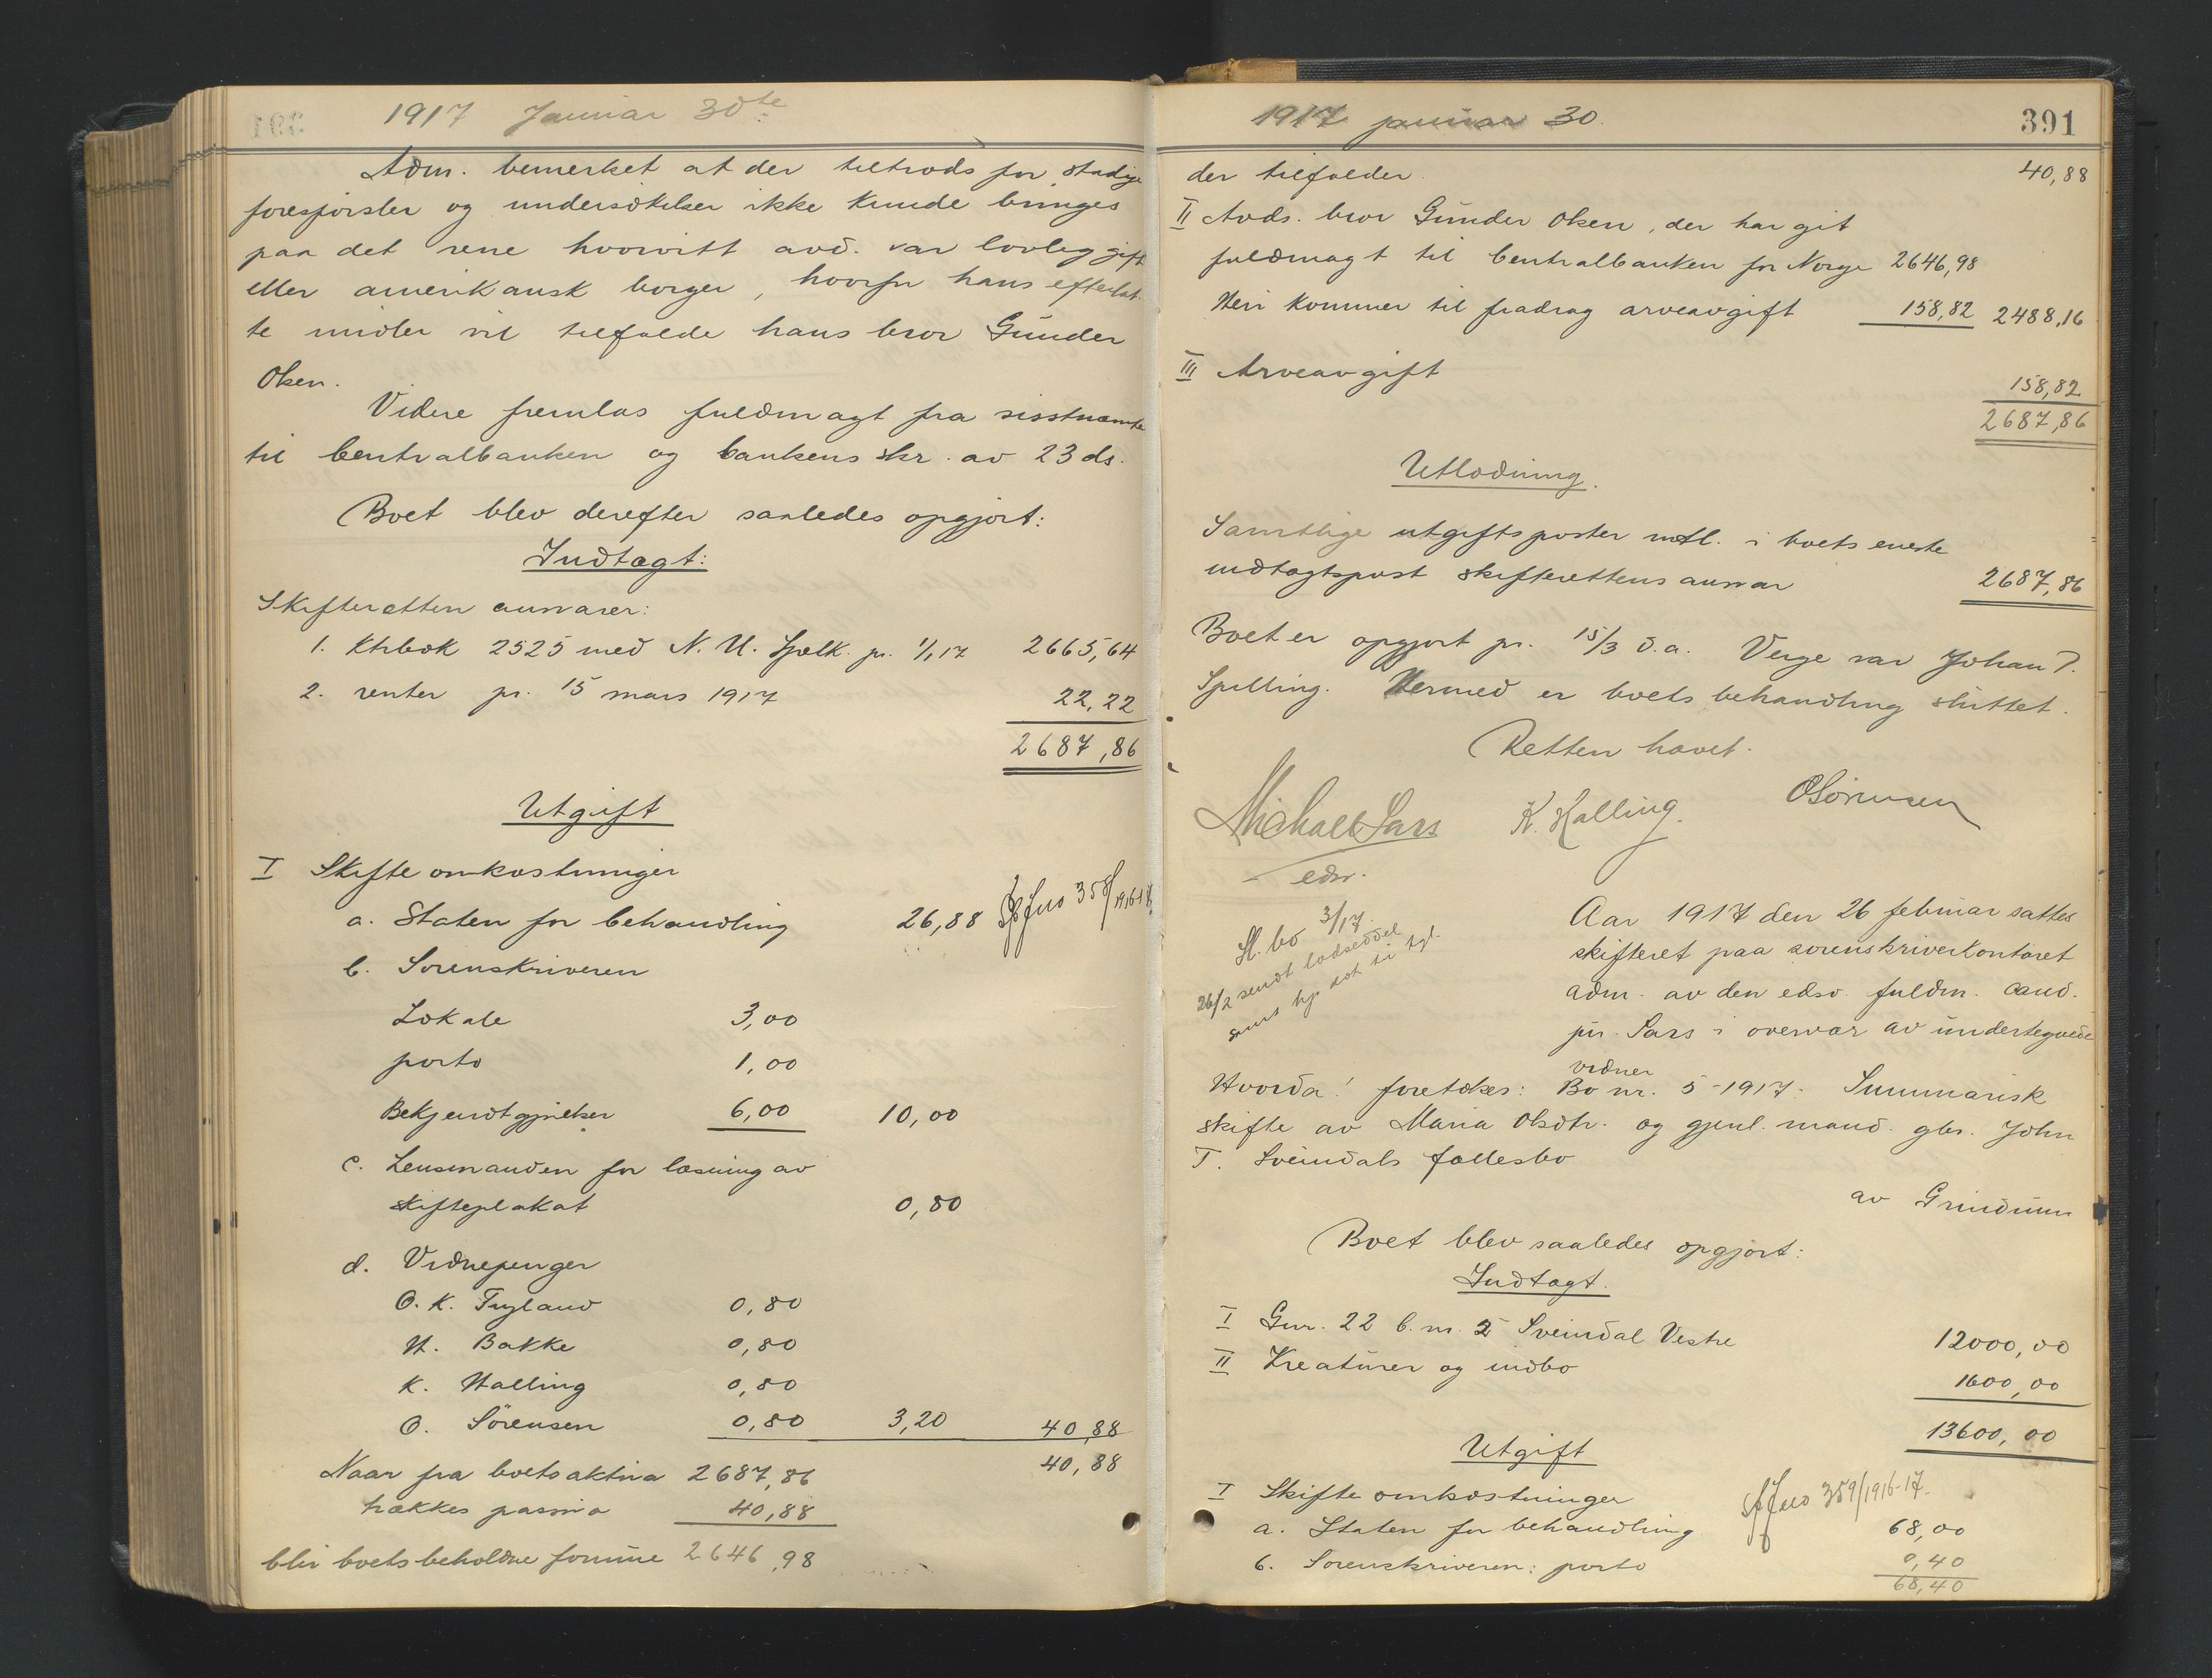 1917 Januar 30te
Adm. bemerket at der tiltrods for stadige
forespørsler og undersøkelser ikke kunde bringes
paa det rene hvorvitt avd. var lovlig gift
eller amerikansk borger, hvorfor hans efterlat-
te midler vil tilfalde hans bror Gunder
Olsen.
Videre fremlas fuldmagt fra sisstnævnte
til Centralbanken og bankens skr. av 23 ds.
Boet blev derefter saaledes opgjort:
Indtægt:
Skifteretten ansvarer:
1. Ktrbok 2525 med N. U. Spelk. pr. 1/1 17 2665,64
2. renter pr. 15 mars 1917 22,22
2687,86
Utgift
I Skifteomkostninger
a. Staten for behandling 26,88 358/1916-17
b. Sorenskriveren
Lokale 3,00
porto 1,00
Bekjendtgjørelser 6,00 10,00
c. Lensmanden for læsning av
skifteplakat 0,80
d. Vidnepenger
O. K. Tryland 0,80
H. Bakke 0,80
K. Halling 0,80
O. Sörensen 0,80 3,20 40,88
Naar fra boets aktiva 2687,86 40,88
trækkes passiva 40,88
blir boets beholdne formue 2646,98
1917 januar 30. 391
der tilfalder 40,88
II Avds. bror Gunder Olsen, der har git
fuldmagt til Centralbanken for Norge 2646,98
Heri kommer til fradrag arveavgift 158,82 2488,16
III Arveavgift 158,82
2687,86
Utlodning.
Samtlige utgiftsposter utl. i boets eneste
indtægtspost skifterettens ansvar 2687,86
Boet er opgjort pr. 15/3 d.a. Verge var Johan T.
Spilling. Hermed er boets behandling sluttet.
Retten hævet.
Michael Sars K. Halling. O Sörensen
edsv.
Sl. bo 3/17.
26/2 sendt lodseddel
Aar 1917 den 26 februar sattes
skifteret paa sorenskriverkontoret
adm. av den edsv. fuldm. cand.
jur. Sars i overvær av undertegnede
vidner
Hvorda! foretokes: Bo nr. 5-1917. Summarisk
skifte av Maria Olsdtr. og gjenl. mand gbr. John
T. Sveindals fællesbo
av Grindum
Boet blev saaledes opgjort:
Indtægt.
I Gnr. 22 b.nr. 2 Sveindal Vestre 12000,00
II Kreaturer og indbo 1600,00
13600,00
Utgift
I Skifteomkostninger 359/1916-17.
a. Staten for behandling 68,00
b. Sorenskriveren: porto 0,40
68,40